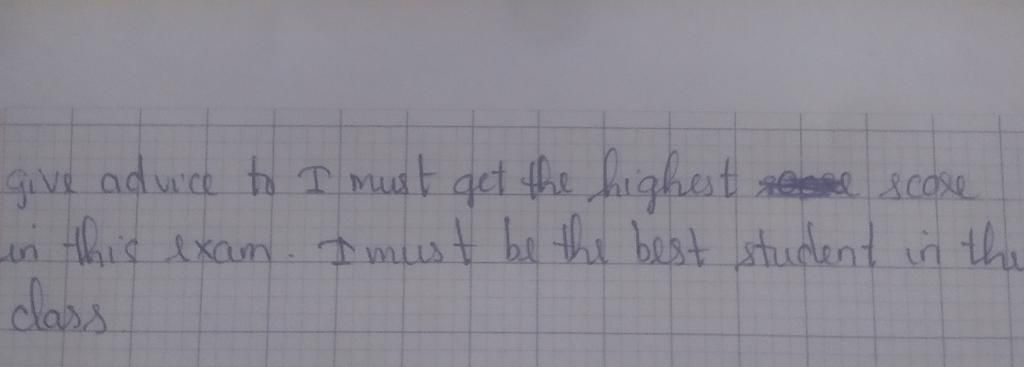 give advice to I must get the highest score
in this exam. I must be the best student in the
class